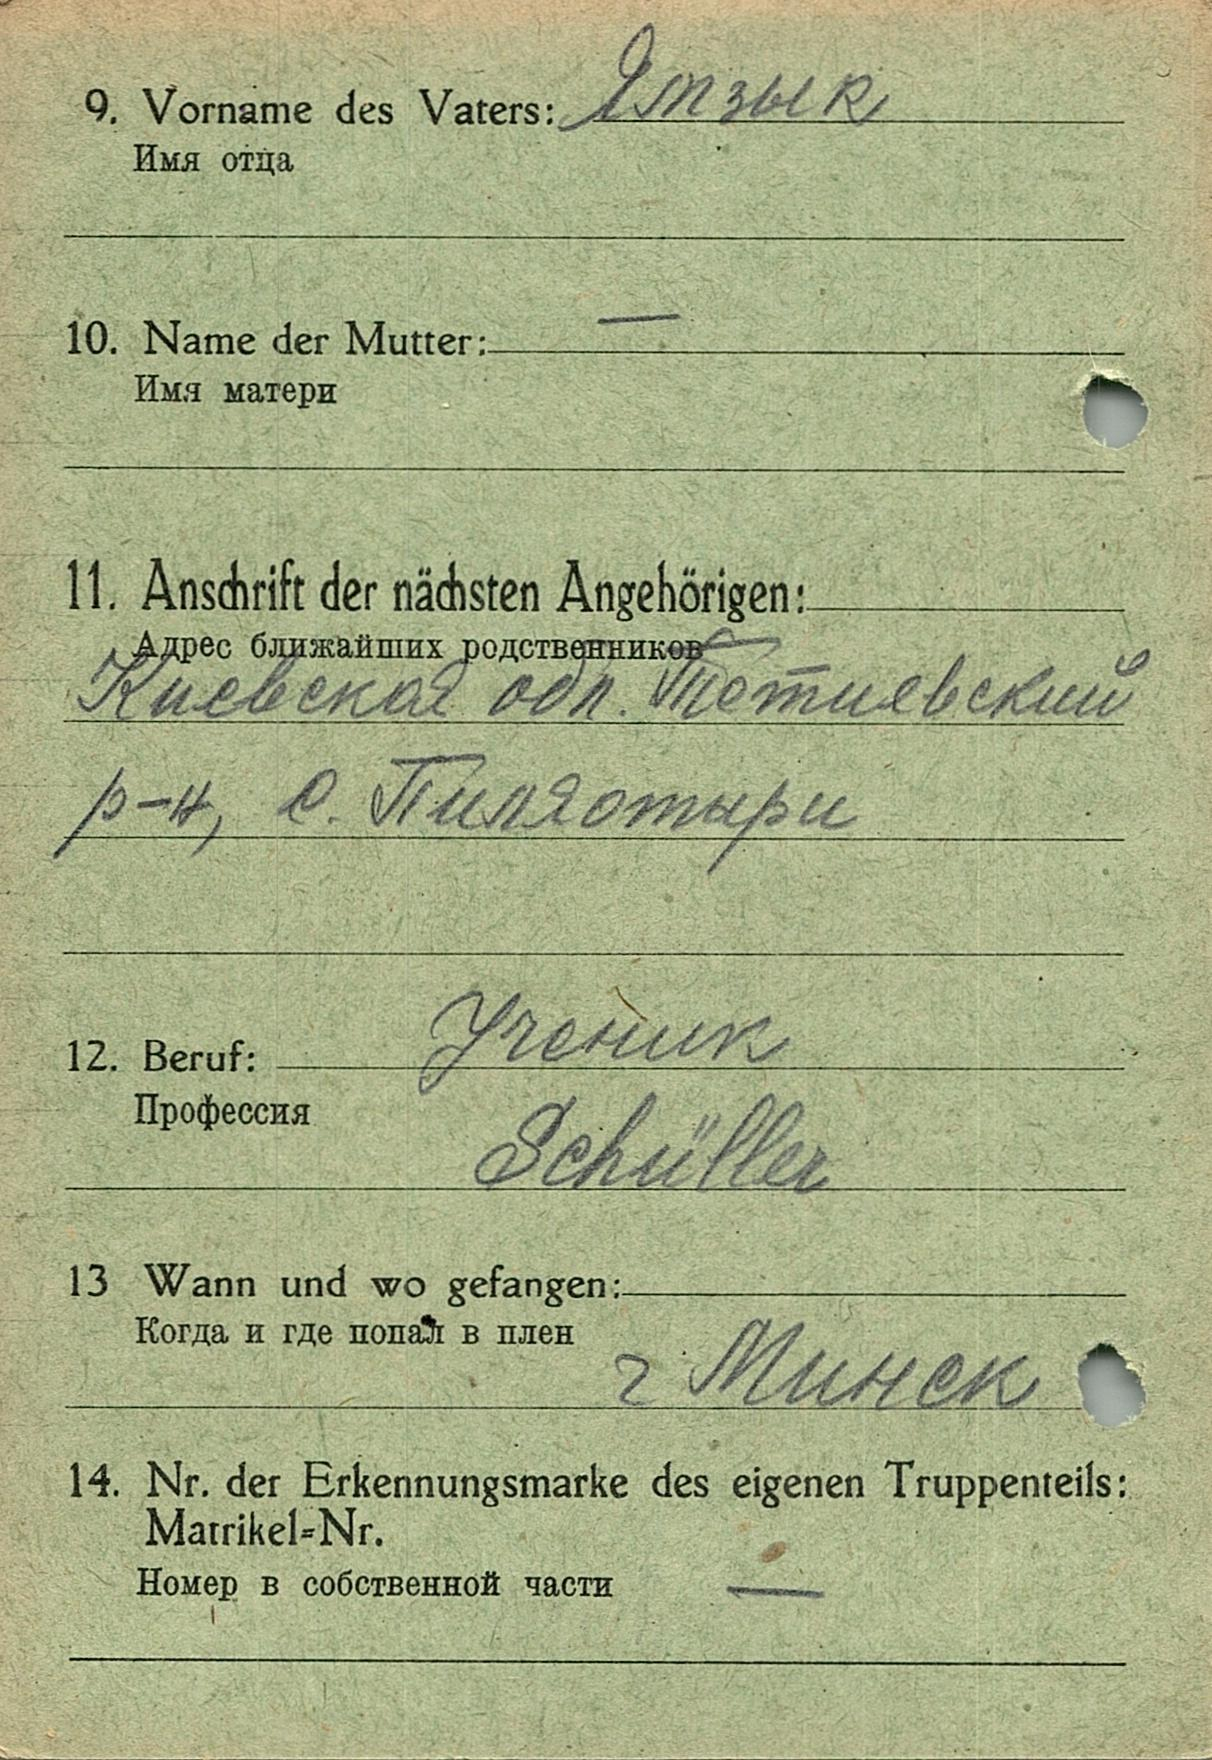 9. Vorname des Vaters: Ятзык
Имя отца
10. Name der Mutter: —
Имя матери
11. Anschrift der nächsten Angehörigen:
Адрес ближайших родственников
Киевская обл. Тетиевский
р-н, с.
12. Beruf: Ученик
Профессия
Schüller
13 Wann und wo gefangen:
Когда и где попал в плен
г Минск
14. Nr. der Erkennungsmarke des eigenen Truppenteils:
Matrikel=Nr.
Номер в собственной части —